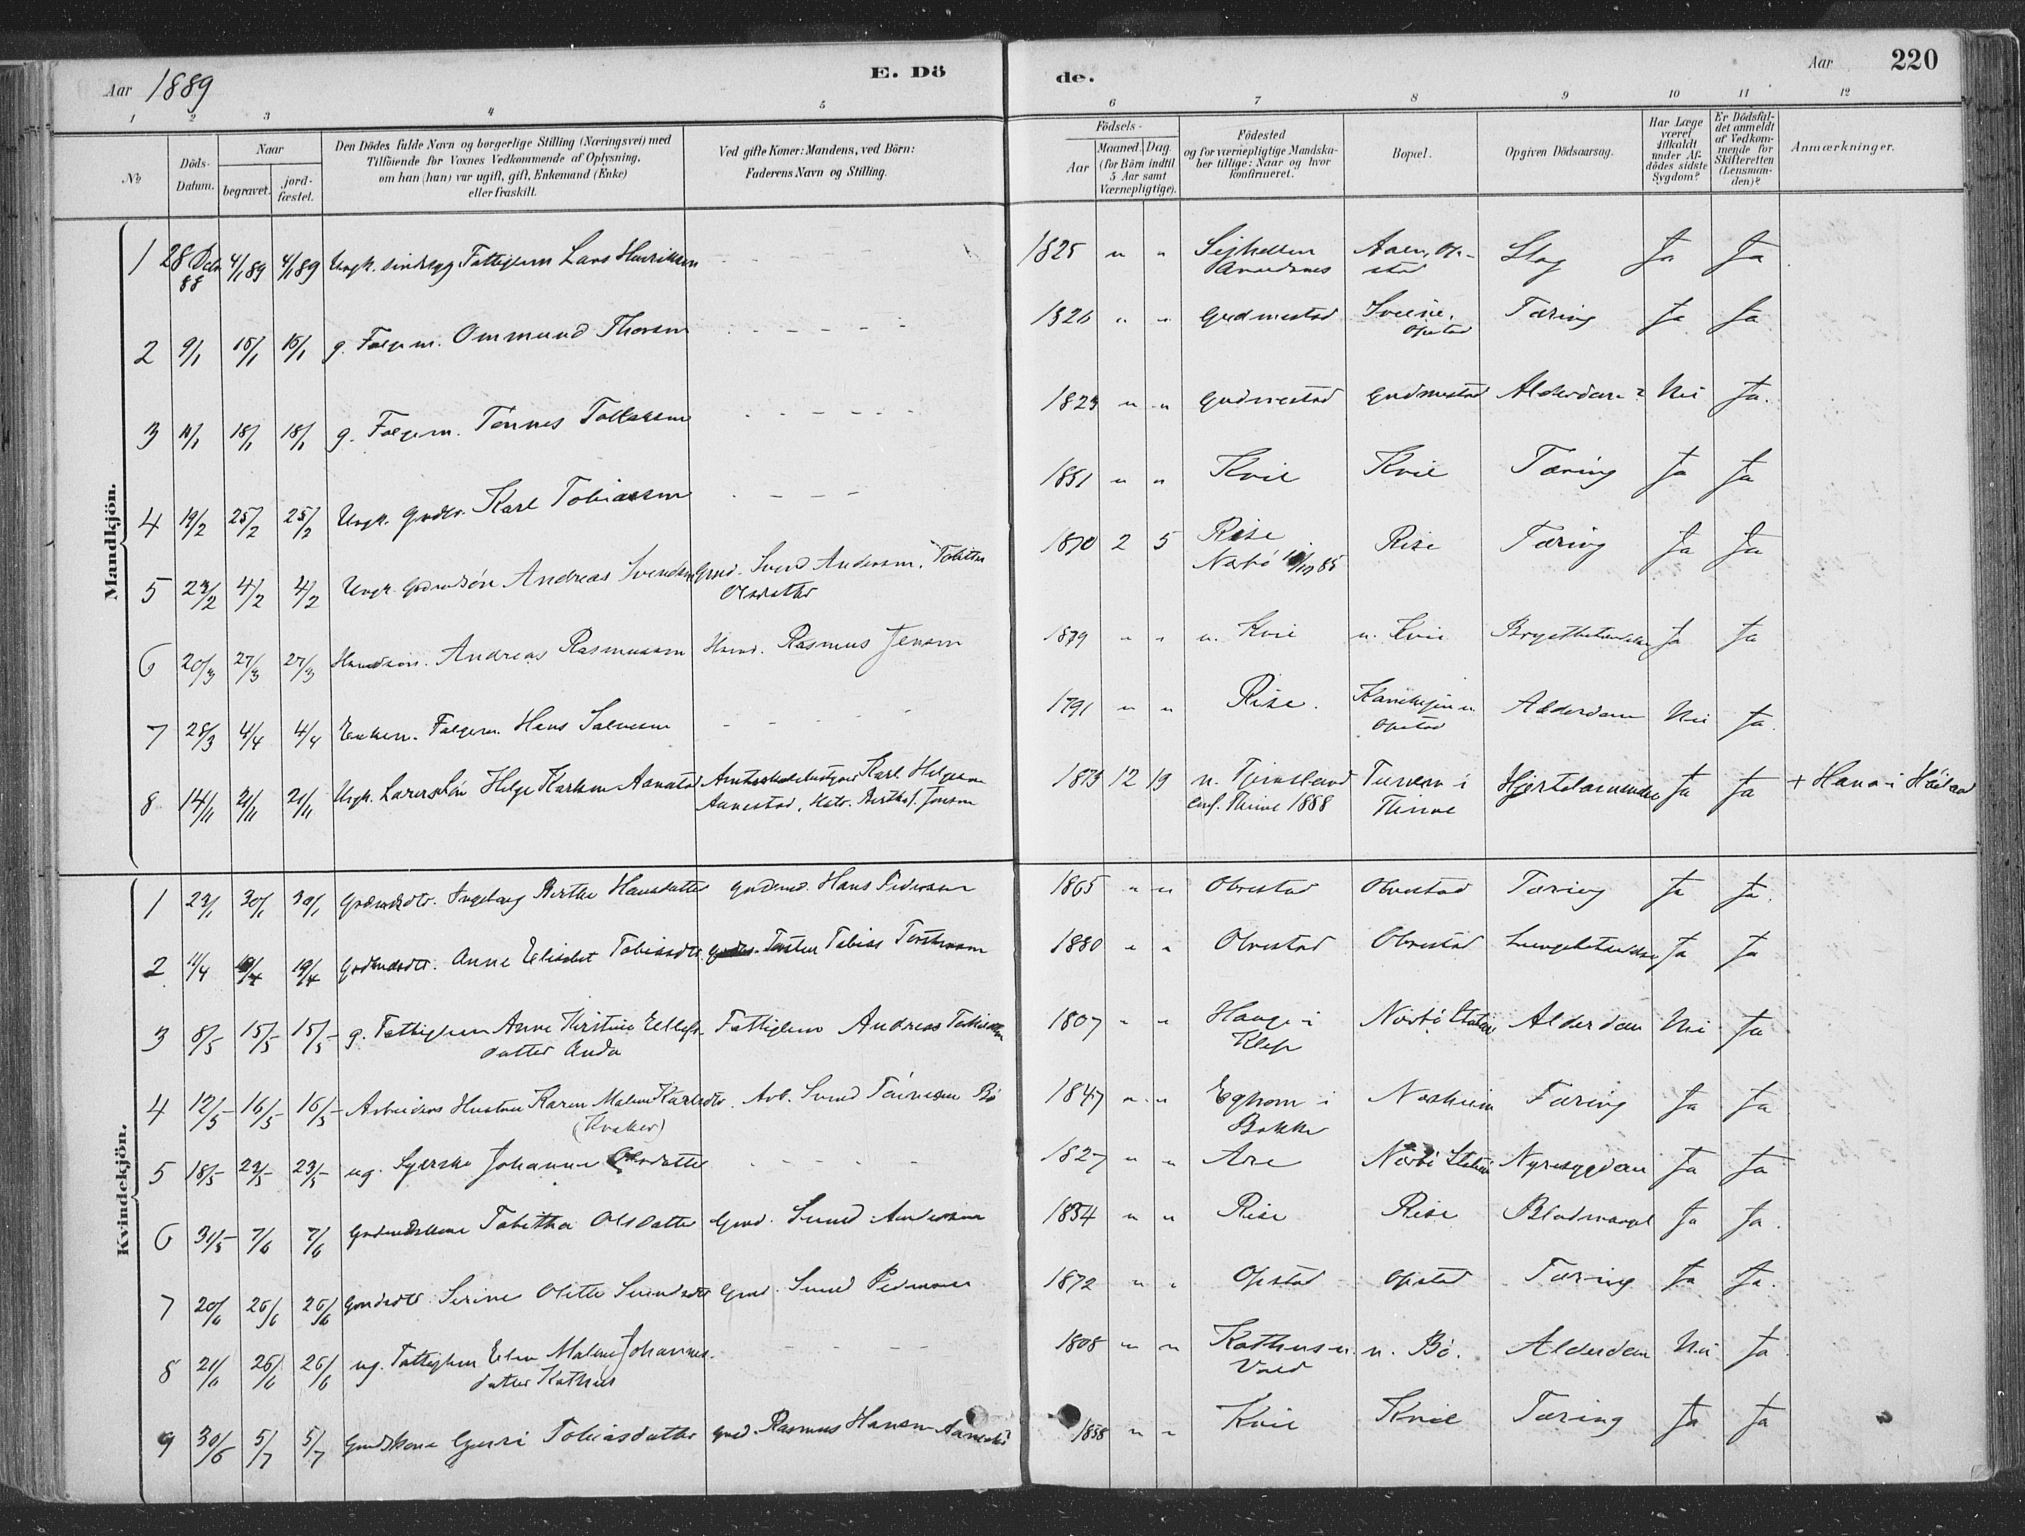 Aar 1889
E. Dö
de.
Aar 220
1 2 3 4 5
6 7 8 9 10 11 12
№
Döds-Datum.
Naar
begravet.
jord-fæstet.
Den Dödes fulde Navn og borgerlige Stilling (Næringsvei) med
Tilföiende for Voxnes Vedkommende af Oplysning,
om han (hun) var ugift, gift, Enkemand (Enke)
eller fraskilt.
Ved gifte Koner: Mandens, ved Börn:
Faderens Navn og Stilling.
Födsels-
Aar
Maaned. Dag.
(for Börn indtil
5 Aar samt
Værnepligtige).
Födested
og for værnepligtige Mandska-
ber tillige: Naar og hvor
konfirmeret.
Bopæl.
Opgiven Dödsaarsag.
Har Læge
været
tilkaldt
under Af-
dödes sidste
Sygdom?
Er Dödsfal-
det anmeldt
af Vedkom-
mende for
Skifteretten
(Lensman-
den)?
Anmærkninger.
Mandkjön.
1 28 Decbr 88 4/1 89 4/1 89 Ungk. sindssyg Fattiglem Lars Henriksen 1825 " " Aaen, Op-stad Slag Ja Ja
2 9/1 15/1 15/1 g. Folgem. Ommund Thorsen 1826 " " Gudmestad Opstad Tæring Ja Ja
3 11/1 18/1 18/1 g. Folgem. Tönnes Tollaksen 1823 " " Gudmestad Gudmestad Alderdom? Nei Ja.
4 19/2 25/2 25/2 Ungk. Grdbr. Karl Tobiassen 1851 " " Kvie Kvie Tæring Ja Ja
5 4/2 4/2 Ungk. Andreas Svendsen Grmd. Svend Andersen, Tobitha Olsdatter 1870 2 5 Rise Nærbö 85 Rise Tæring Ja Ja
6 20/3 27/3 27/3 Andreas Rasmussen Rasmus Jensen 1879 " " n. Kvie n. Kvie Brystbetændelse Ja Ja
7 28/3 4/4 4/4 Enkem. Folgem. Hans Salvesen 1791 " " Rise. Opstad Alderdom Nei Ja.
8 14/11 21/11 21/11 Ungk. Helge Karlsen Aanestad Karl Helgesen Aanestad, Jonsen 1873 12 19 n. conf. Thime 1888 Tunem i Thime Ja Ja + Hana i Höiland
Kvindekjön.
1 23/1 30/1 30/1 Ingeborg Berthe Hansdatter Grdmd. Hans Pedersen 1865 " " Obrestad Obrestad Tæring Ja Ja.
2 11/4 19/4 19/4 Anne Elisabet Tobiasdtr. Tobias Torstensen 1880 " " Obrestad Obrestad Lungebetændelse Ja Ja
3 8/5 15/5 15/5 g. Fattiglem Anne Kirstine Ellefs-datter Anda Fattiglem Andreas Tobiassen 1807 " " Hauge i Klep Nærbö Station Alderdom Nei Ja
4 12/5 16/5 16/5 Arbeiders Hustru Karen Malene Karlsdtr. (Kvæker) Arb. Svend Tönnesen Bö 1847 " " Eghom i Bakke Næsheim Tæring Ja Ja
5 18/5 23/5 23/5 ug. Syerske Johanne Olsdatter 1827 " " Are Nærbö Station Nyresygdom Ja Ja
6 31/5 7/6 7/6 Tobitha Olsdatter Grmd. Svend Andersen 1834 " " Rise Rise Blodmangel Ja Ja.
7 20/6 26/6 26/6 Serine Olette Svendsdtr. Grmd. Svend Pedersen 1872 " " Opstad Opstad Tæring Ja Ja.
8 21/6 26/6 26/6 ug. Fattiglem Elen Malene Johannes-datter Kathus 1808 " " Kathus n. n. Bö. Alderdom Nei Ja.
9 30/6 5/7 5/7 Guri Tobiasdatter Rasmus Hansen Aanestad 1858 " " Kvie Kvie Tæring Ja Ja